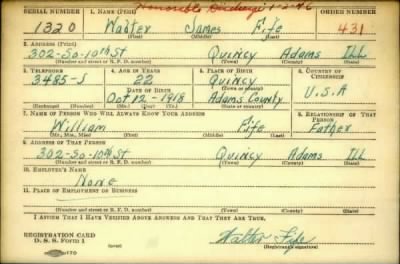 Honorable Discharge 1-2-46
SERIAL NUMBER 1. NAME (Print) ORDER NUMBER
1320 Walter James Fife 431
(First) (Middle) (Last)
2. ADDRESS (Print)
302-So-10th St Quincy Adams Ill
(Number and street or R. F. D. number) (Town) (County) (State)
3. TELEPHONE 4. AGE IN YEARS 5. PLACE OF BIRTH 6. COUNTRY OF CITIZENSHIP
3485-J 22 Quincy
DATE OF BIRTH (Town or county)
Oct 12 - 1918 Adams County U.S.A
(Exchange) (Number) (Mo.) (Day) (Yr.) (State or country)
7. NAME OF PERSON WHO WILL ALWAYS KNOW YOUR ADDRESS 8. RELATIONSHIP OF THAT PERSON
William Fife Father
(Mr., Mrs., Miss) (First) (Middle) (Last)
9. ADDRESS OF THAT PERSON
302-So-10th St Quincy Adams Ill
(Number and street or R. F. D. number) (Town) (County) (State)
10. EMPLOYER'S NAME
None
11. PLACE OF EMPLOYMENT OR BUSINESS
(Number and street or R. F. D. number) (Town) (County) (State)
I AFFIRM THAT I HAVE VERIFIED ABOVE ANSWERS AND THAT THEY ARE TRUE.
REGISTRATION CARD
D. S. S. Form 1 Walter Fife
(Registrant's signature)